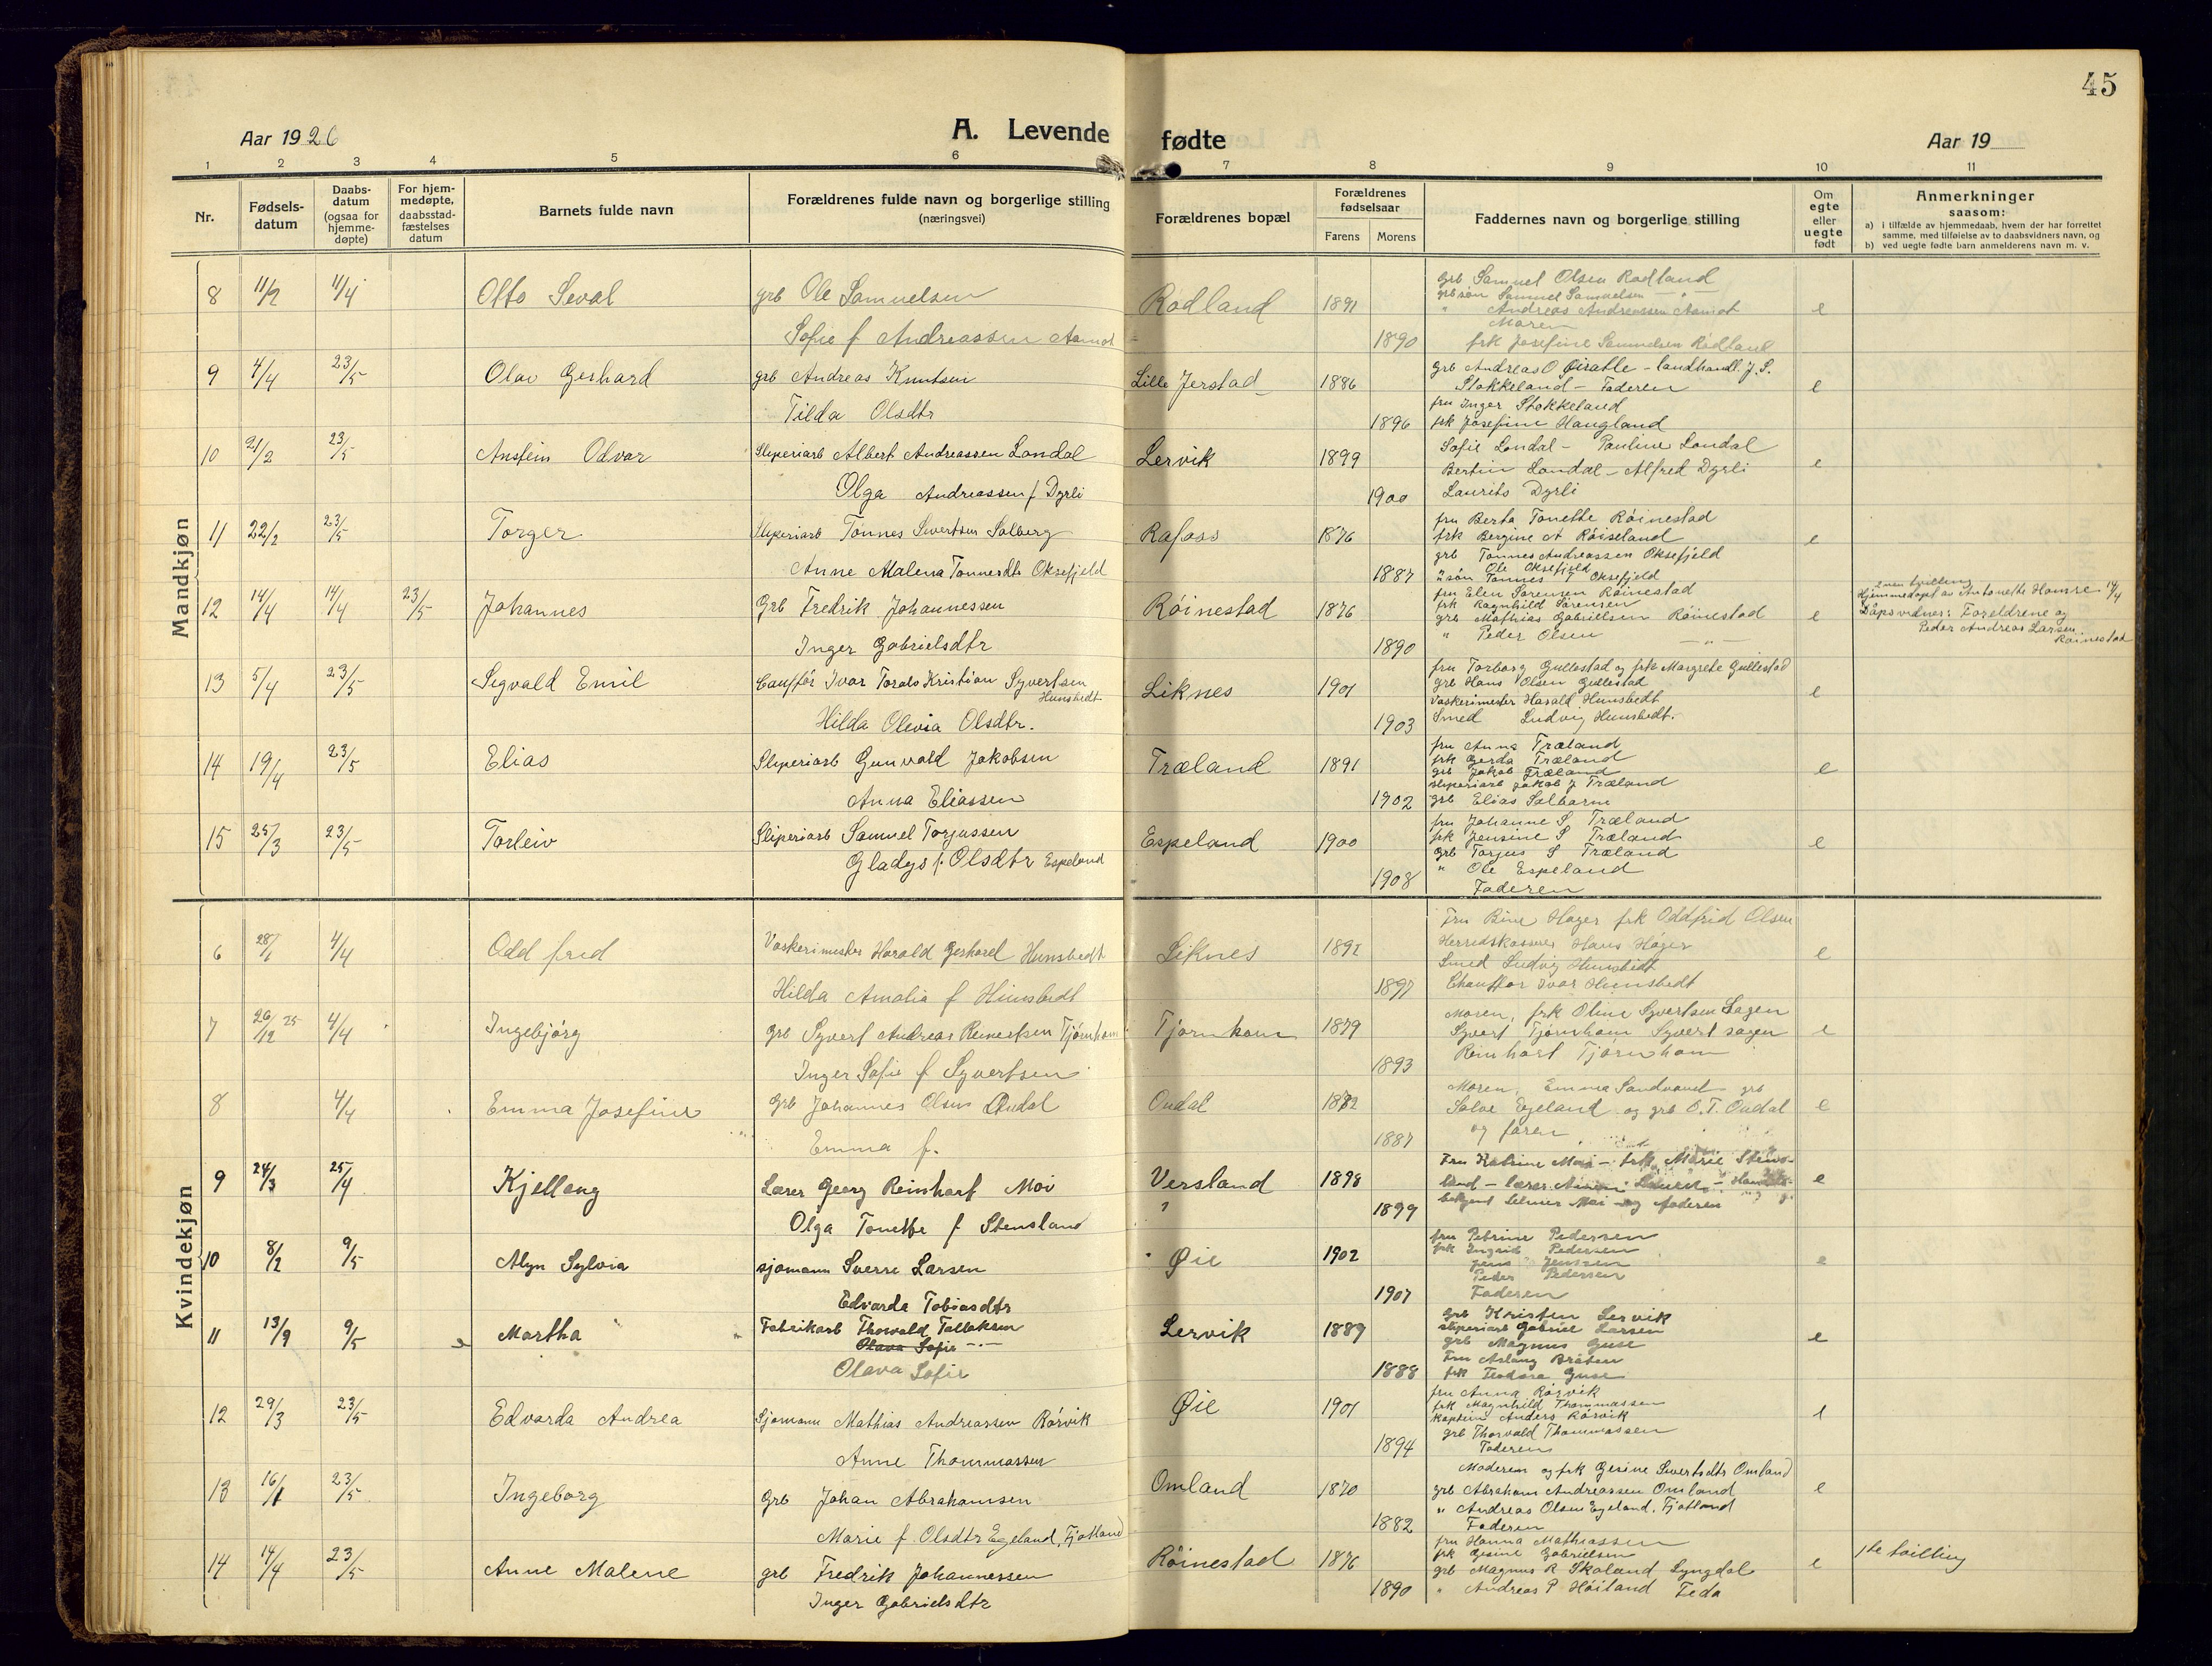 45
Aar 1926
A. Levende fødte
Aar 19
1 2 3 4 5 6 7 8 9 10 11
Nr.
Fødsels-
datum
Daabs-
datum
(ogsaa for
hjemme-
døpte)
For hjem-
medøpte,
daabsstad-
fæstelses
datum
Barnets fulde navn
Forældrenes fulde navn og borgerlige stilling
(næringsvei)
Forældrenes bopæl
Forældrenes
fødselsaar
Farens Morens
Faddernes navn og borgerlige stilling
Om
egte
eller
uegte
født
Anmerkninger
saasom:
a) i tilfælde av hjemmedaab, hvem der har forrettet
samme, med tilføielse av to daabsvidners navn, og
b) ved uegte fødte barn anmelderens navn m. v.
Mandkjøn
8 11/2 11/4 Otto Seval grb Ole Samuelsen Rødland 1891 e
Sofie f Andreassen Aamot 1890
grb Samuel Olsen Rødland
grb søn Samuel Samuelsen
" Andreas Andreassen Aamot
Moren
frk Josefine Samuelsen Rødland
9 4/4 23/5 Olav Gerhard grb Andreas Knutsen Lille Jerstad 1886 e
Tilda Olsdtr 1896
grb Andreas O - landhandl. J. S.
Stokkeland - Faderen
fru Inger Stokkeland
frk Josefine Haugland
10 21/2 23/5 Anstein Odvar Sliperiarb Albert Andreassen Londal Lervik 1899 e
Olga Andreassen f Dyrli 1900
Sofie Londal - Pauline Londal
Bertin Londal - Alfred Dyrli
Laurits Dyrli
11 22/2 23/5 Torger Sliperiarb Tønnes Sivertsen Solberg Rafoss 1876 e
Anne Malena Tønnesdtr Oksefjeld 1887
fru Berta Tonette Røinestad
frk Bergine A Røiseland
grb Tønnes Andreassen Oksefjeld
Ole Oksefjeld
Tønnes T Oksefjeld
12 14/4 14/4 23/5 Johannes Grb Fredrik Johannessen Røinestad 1876 e
Inger Gabrielsdtr 1890
fru Elen Sørensen Røinestad
frk Ragnhild Sørensen
grb Mathias Gabrielsen Røinestad
" Peder Olsen — " —
2nen tvilling
Hjemmedøpt av Antonette Homme 14/4
Dåpsvidner: Foreldrene og
Peder Andreas Larsen
Røinestad
13 5/4 23/5 Sigvald Emil Cauffør Ivar Torals Kristian Syvertsen Liknes 1901 e
Hunsbedt
Hilda Olevia Olsdtr. 1903
fru Torborg Gullestad og frk Margrete Gullestad
grb Hans Olsen Gullestad
Vaskerimester Harald Hunsbedt
Smed Ludvig Hunsbedt.
14 19/4 23/5 Elias Sliperiarb Gunvald Jakobsen Træland 1891 e
Anna Eliassen 1902
fru Anna Træland
frk Gerda Træland
grb Jakob Træland
sliperiarb Jakob J Træland
grb Elias Salbarm
15 25/3 23/5 Torleiv Sliperiarb Samuel Torjussen Espeland 1900 e
Gladys f. Olsdtr Espeland 1908
fru Johanne S. Træland
frk Jensine S Træland
grb Torjus S Træland
" Ole Espeland
Faderen
Kvindekjøn
6 28/1 4/4 Odd fred Vaskerimester Harald Gerhard Hunsbedt Liknes 1891 e
Hilda Amalia f Hunsbedt 1897
Fru Bine Høger frk Oddfrid Olsen
Herredskasserer Hans Høger
Smed Ludvig Hunsbedt
Chauffør Ivar Hunsbedt
7 26/12 25 4/4 Ingebjørg Grb Syvert Andreas Reinertsen Tjørnhom Tjørnhom 1879 e
Inger Sofie f Syvertsen 1893
Moren, frk Oline Syvertsen Sagen
Syvert Tjørnhom Syvert sagen
Reinhart Tjørnhom
8 4/4 Emma Josefine Grb Johannes Olsen Oudal Oudal 1882 e
Emma f. 1887
Moren, Emma Sandvand grb
Salve Egeland og grb O. T. Oudal
og faren
9 24/3 25/4 Kjellaug Lærer Georg Reinhart Moi Versland 1898 e
Olga Tonette f Stensland " 1899
Fru Katrine Moi - frk Marie Stens-
land - lærer
betjent Selmer Moi - og faderen
10 8/2 9/5 Alyn Sylvia sjømann Sverre Larsen Øie 1902 e
Edvarda Tobiasdtr 1907
fru Petrine Pedersen
frk Ingrid Pedersen
Jens Jenssen
Peder Pedersen
Faderen
11 13/9 9/5 Martha Fabrikarb Thorvald Tallaksen Lervik 1889 e
Olava Sofie -"-
Olava Sofie 1888
Grb Kristen Lervik
sliperiarb Gabriel Larsen
grb Magnus Guse
Fru Aslaug Bråten
frk Teodora Guse
12 29/3 23/5 Edvarda Andrea Sjømann Mathias Andreassen Rørvik Øie 1901 e
Anne Thommassen 1894
fru Anna Rørvik
frk Magnhild Thommassen
Kaptein Anders Rørvik
grb Thorvald Thommassen
Faderen
13 16/1 23/5 Ingeborg Grb Johan Abrahamsen Omland 1870 e
Marie f Olsdtr Egeland, Fjotland 1882
Moderen og frk Gesine Sivertsdtr Omland
grb Abraham Andreassen Omland
" Andreas Olsen Egeland, Fjotland
Faderen
14 14/4 23/5 Anne Malene grb Fredrik Johannessen Røinestad 1876 e
Inger Gabrielsdtr 1890
fru Hanna Mathiassen
frk Gesine Gabrielsen
grb Magnus R Skoland Lyngdal
" Andreas P Høiland Feda
1ste tvilling